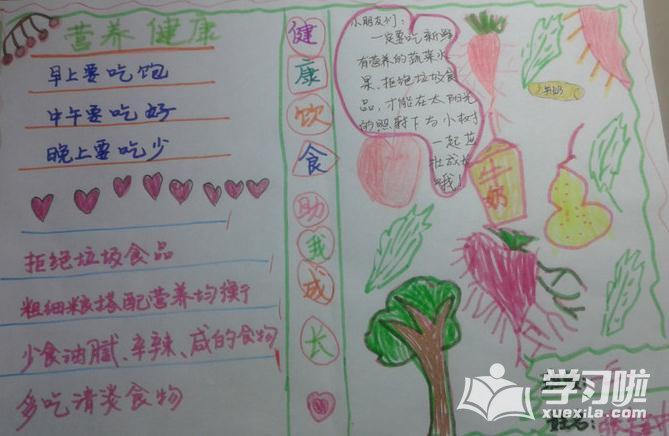 营养健康
早上要吃饱
中午要吃好
晚上要吃少
拒绝垃圾食品
粗细粮搭配营养均衡
少食油腻、辛辣、咸的食物
多吃清淡食物
健
康
饮
食
助
我
成
长
小朋友们：
一定要吃新鲜
有营养的蔬菜水
果，拒绝垃圾食
品，才能在太阳光
的照射下与小树
一起茁
壮成长
哦！
牛
奶
姓名：
学习啦
xuexila.com